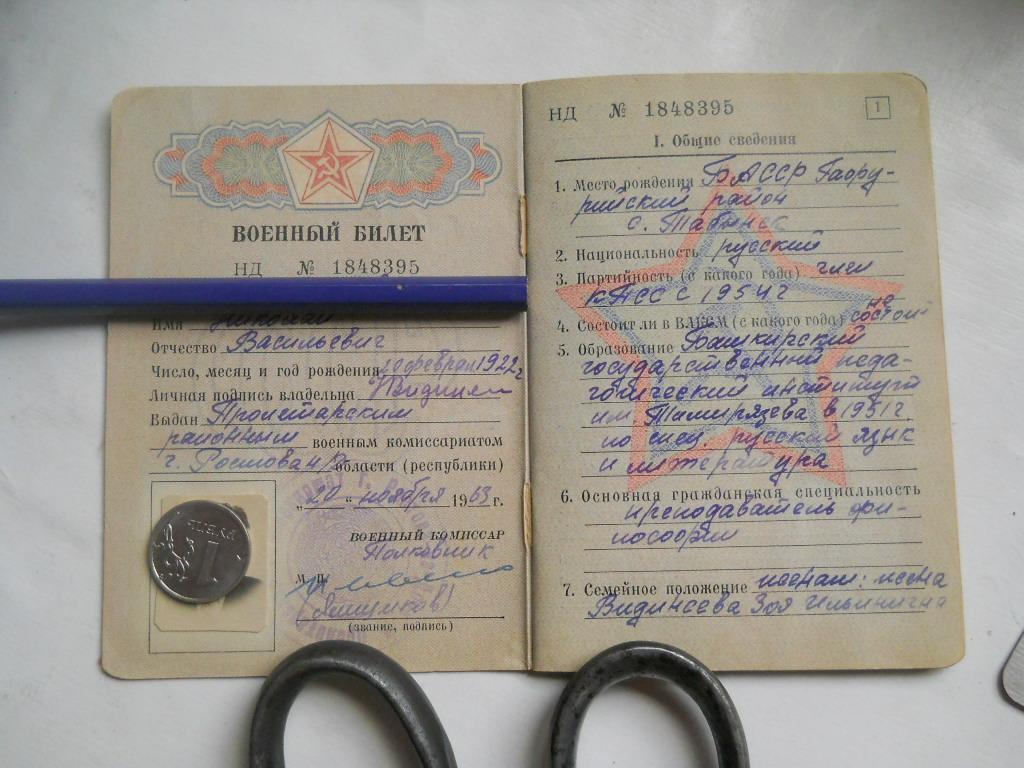 ВОЕННЫЙ БИЛЕТ
НД № 1848395
Имя Николай
Отчество Васильевич
Число, месяц и год рождения 20 феврал 1922 г
Личная подпись владельца
Выдан Пролетарским
районным военным комиссариатом
г. Ростова н/Д области (республики)
„20“ ноября 1963 г.
ВОЕННЫЙ КОМИССАР
Полковник
М. П.
(Ямщиков)
(звание, подпись)
1
РУБЛЬ
НД № 1848395
1
I. Общие сведения
1. Место рождения БАССР Гафу-
рийский район
с. Табынск
2. Национальность русский
3. Партийность (с какого года) член
КПСС с 1954 г
4. Состоит ли в ВЛКСМ (с какого года) не состоит
5. Образование Башкирский
государственный педа-
гогический институт
им. Тимирязева в 1951 г.
по спец. русский язык
и литература
6. Основная гражданская специальность
преподаватель фи-
лософии
7. Семейное положение женат: жена
Видинеева Зоя Ильинична